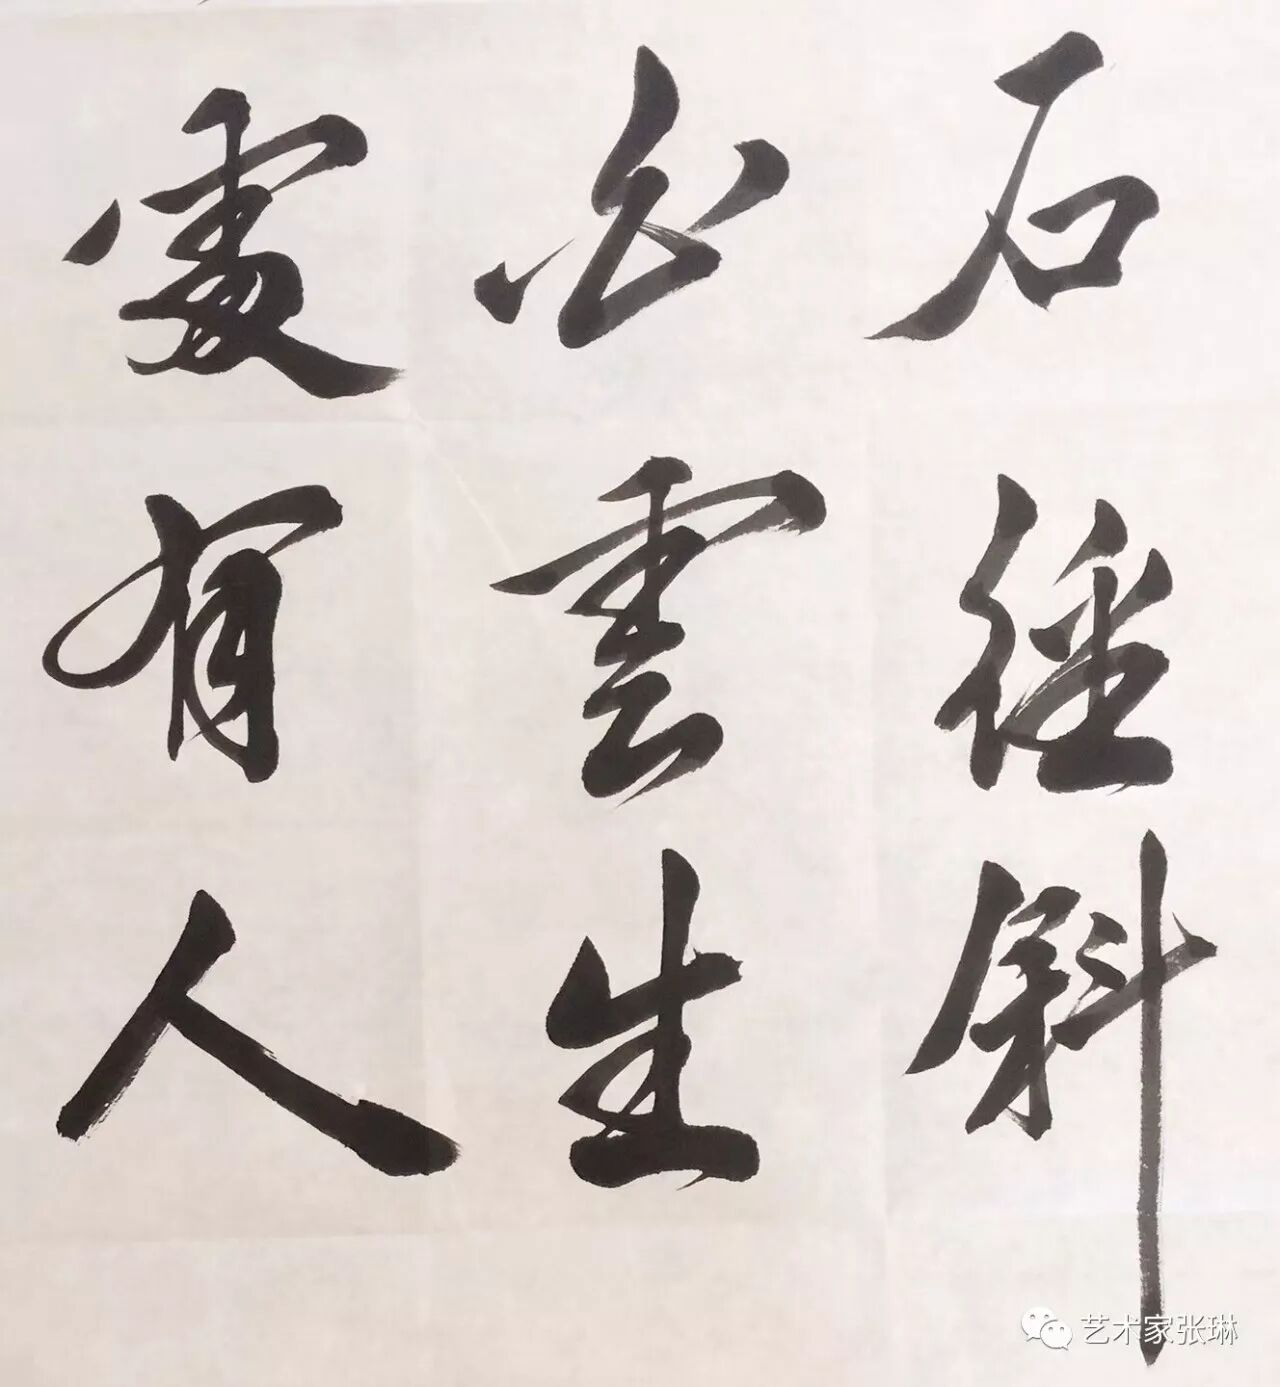 石徑斜
白雲生
處有人
艺术家张琳